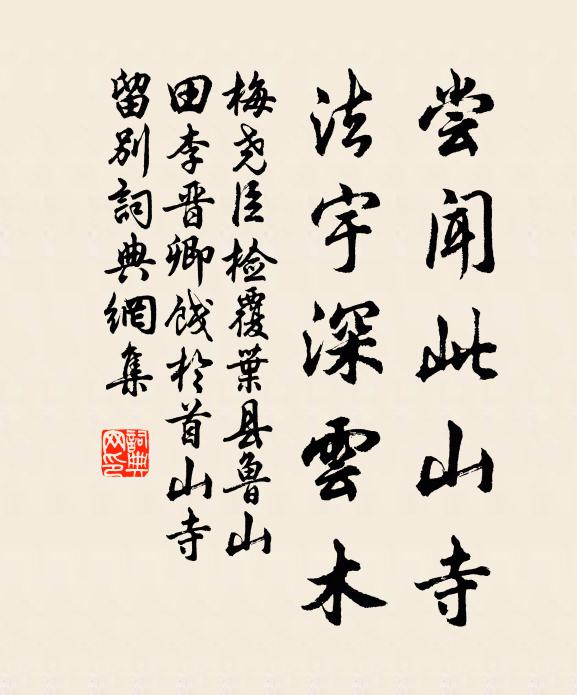 尝闻此山寺
法宇深雲木
梅尧臣检覆葉县魯山
田李晋卿餞於首山寺
留别詞典網集
詞典
网印